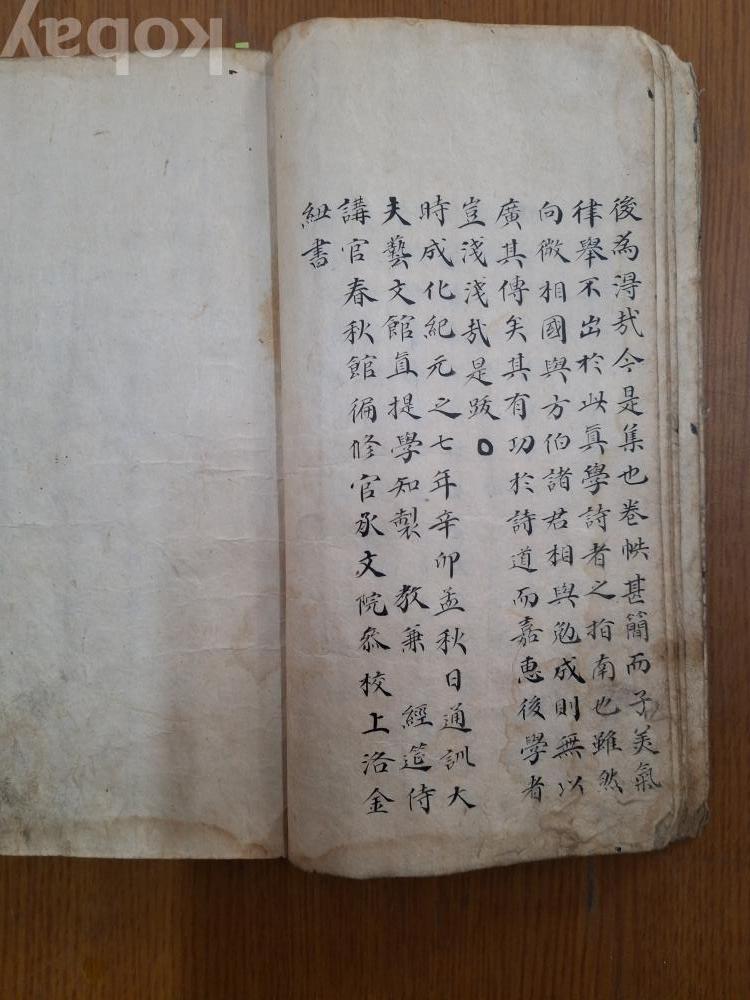 後為淂㢤今是集也卷帙甚簡而子美氣
律舉不出於此真學詩者之指南也雖然
向微相國與方伯諸君相與勉成則無以
廣其傳矣其有功於詩道而嘉惠後學者
豈淺淺㢤是跋
時成化紀元之七年辛卯孟秋日通訓大
夫藝文館直提學知製 教兼 經筵侍
講官春秋館編修官承文院叅校上洛金
紐書
kobay